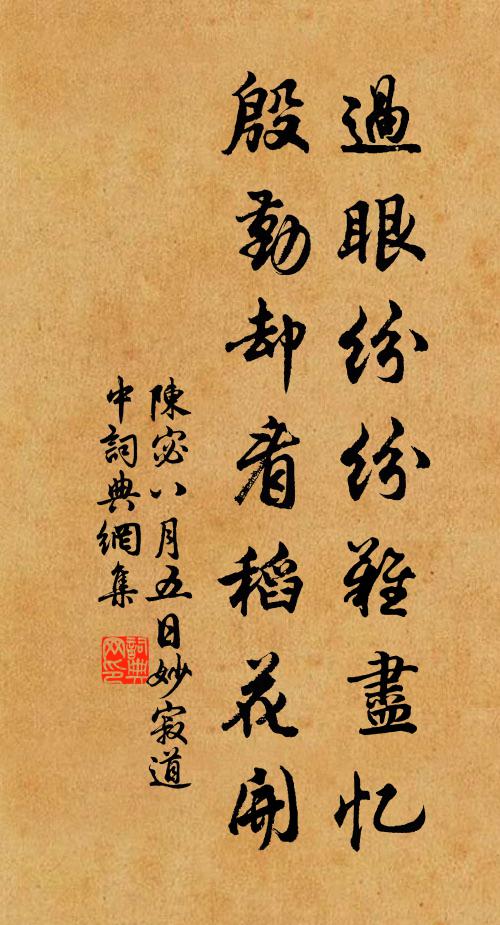 過眼紛紛難盡忆
殷勤却看稻花開
陳宓八月五日妙寂道
中詞典網集
詞典网印